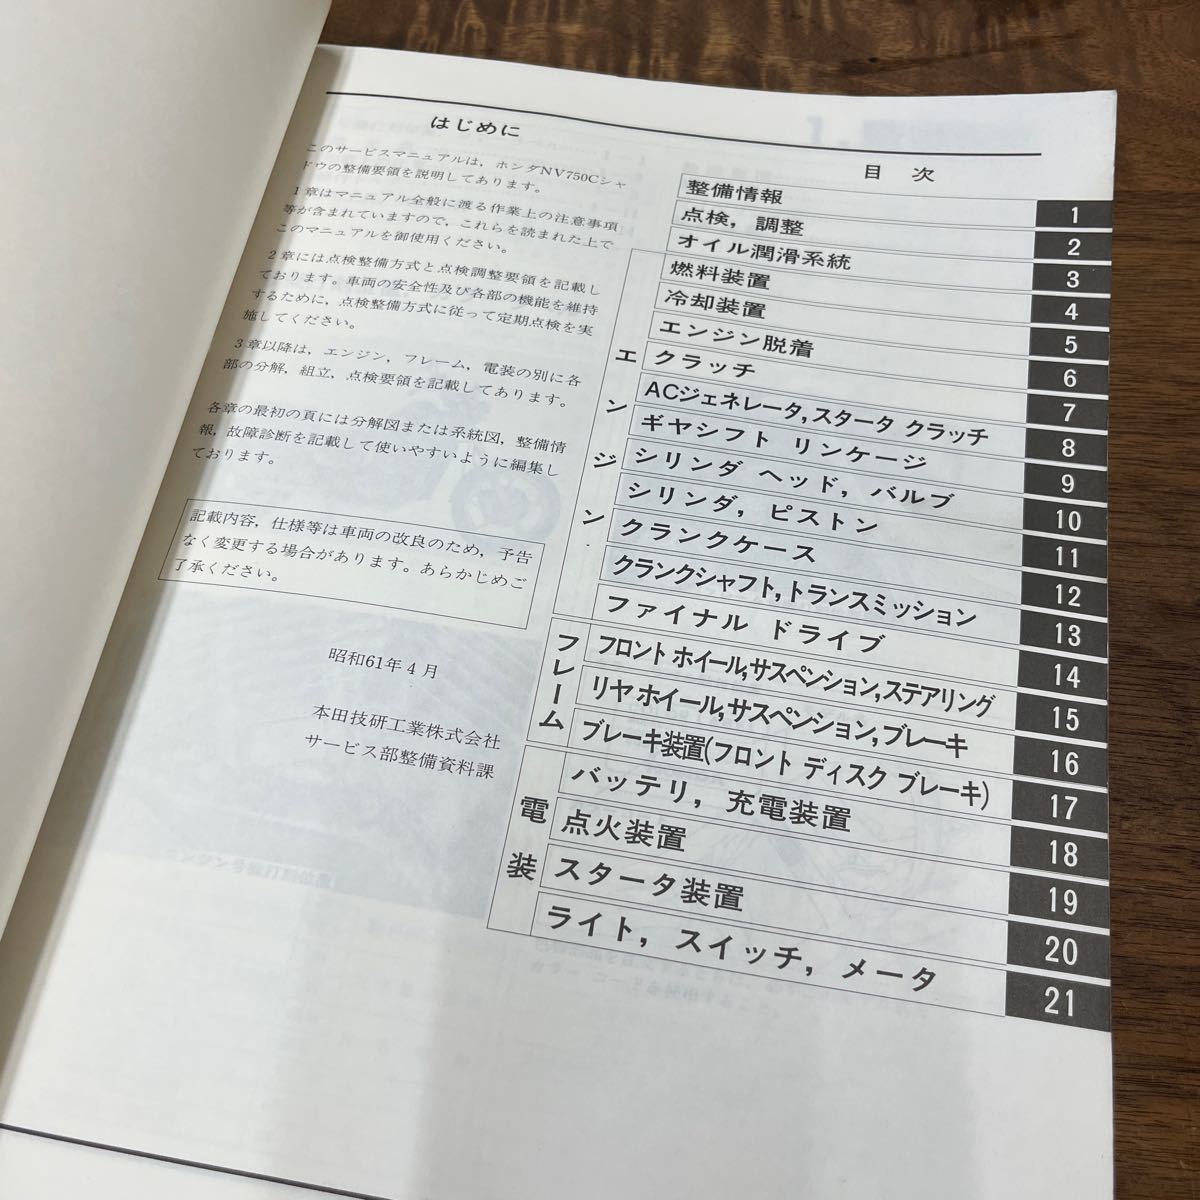 はじめに
このサービスマニュアルは，ホンダNV750Cシャ
ドウの整備要領を説明してあります。
1章はマニュアル全般に渡る作業上の注意事項
等が含まれていますので，これらを読まれた上で
このマニュアルを御使用ください。
2章には点検整備方式と点検調整要領を記載し
ております。車両の安全性及び各部の機能を維持
するために，点検整備方式に従って定期点検を実
施してください。
3章以降は，エンジン，フレーム，電装の別に各
部の分解，組立，点検要領を記載してあります。
各章の最初の頁には分解図または系統図，整備情
報，故障診断を記載して使いやすいように編集し
ております。
記載内容，仕様等は車両の改良のため，予告
なく変更する場合があります。あらかじめご
了承ください。
昭和61年4月
本田技研工業株式会社
サービス部整備資料課
目 次
整備情報 1
点検，調整 2
オイル潤滑系統 3
エンジン
燃料装置 4
冷却装置 5
エンジン脱着 6
クラッチ 7
ACジェネレータ，スタータ クラッチ 8
ギヤシフト リンケージ 9
シリンダ ヘッド，バルブ 10
シリンダ，ピストン 11
クランクケース 12
クランクシャフト，トランスミッション 13
ファイナル ドライブ 14
フレーム
フロント ホイール，サスペンション，ステアリング 15
リヤ ホイール，サスペンション，ブレーキ 16
ブレーキ装置(フロント ディスク ブレーキ) 17
電装
バッテリ，充電装置 18
点火装置 19
スタータ装置 20
ライト，スイッチ，メータ 21